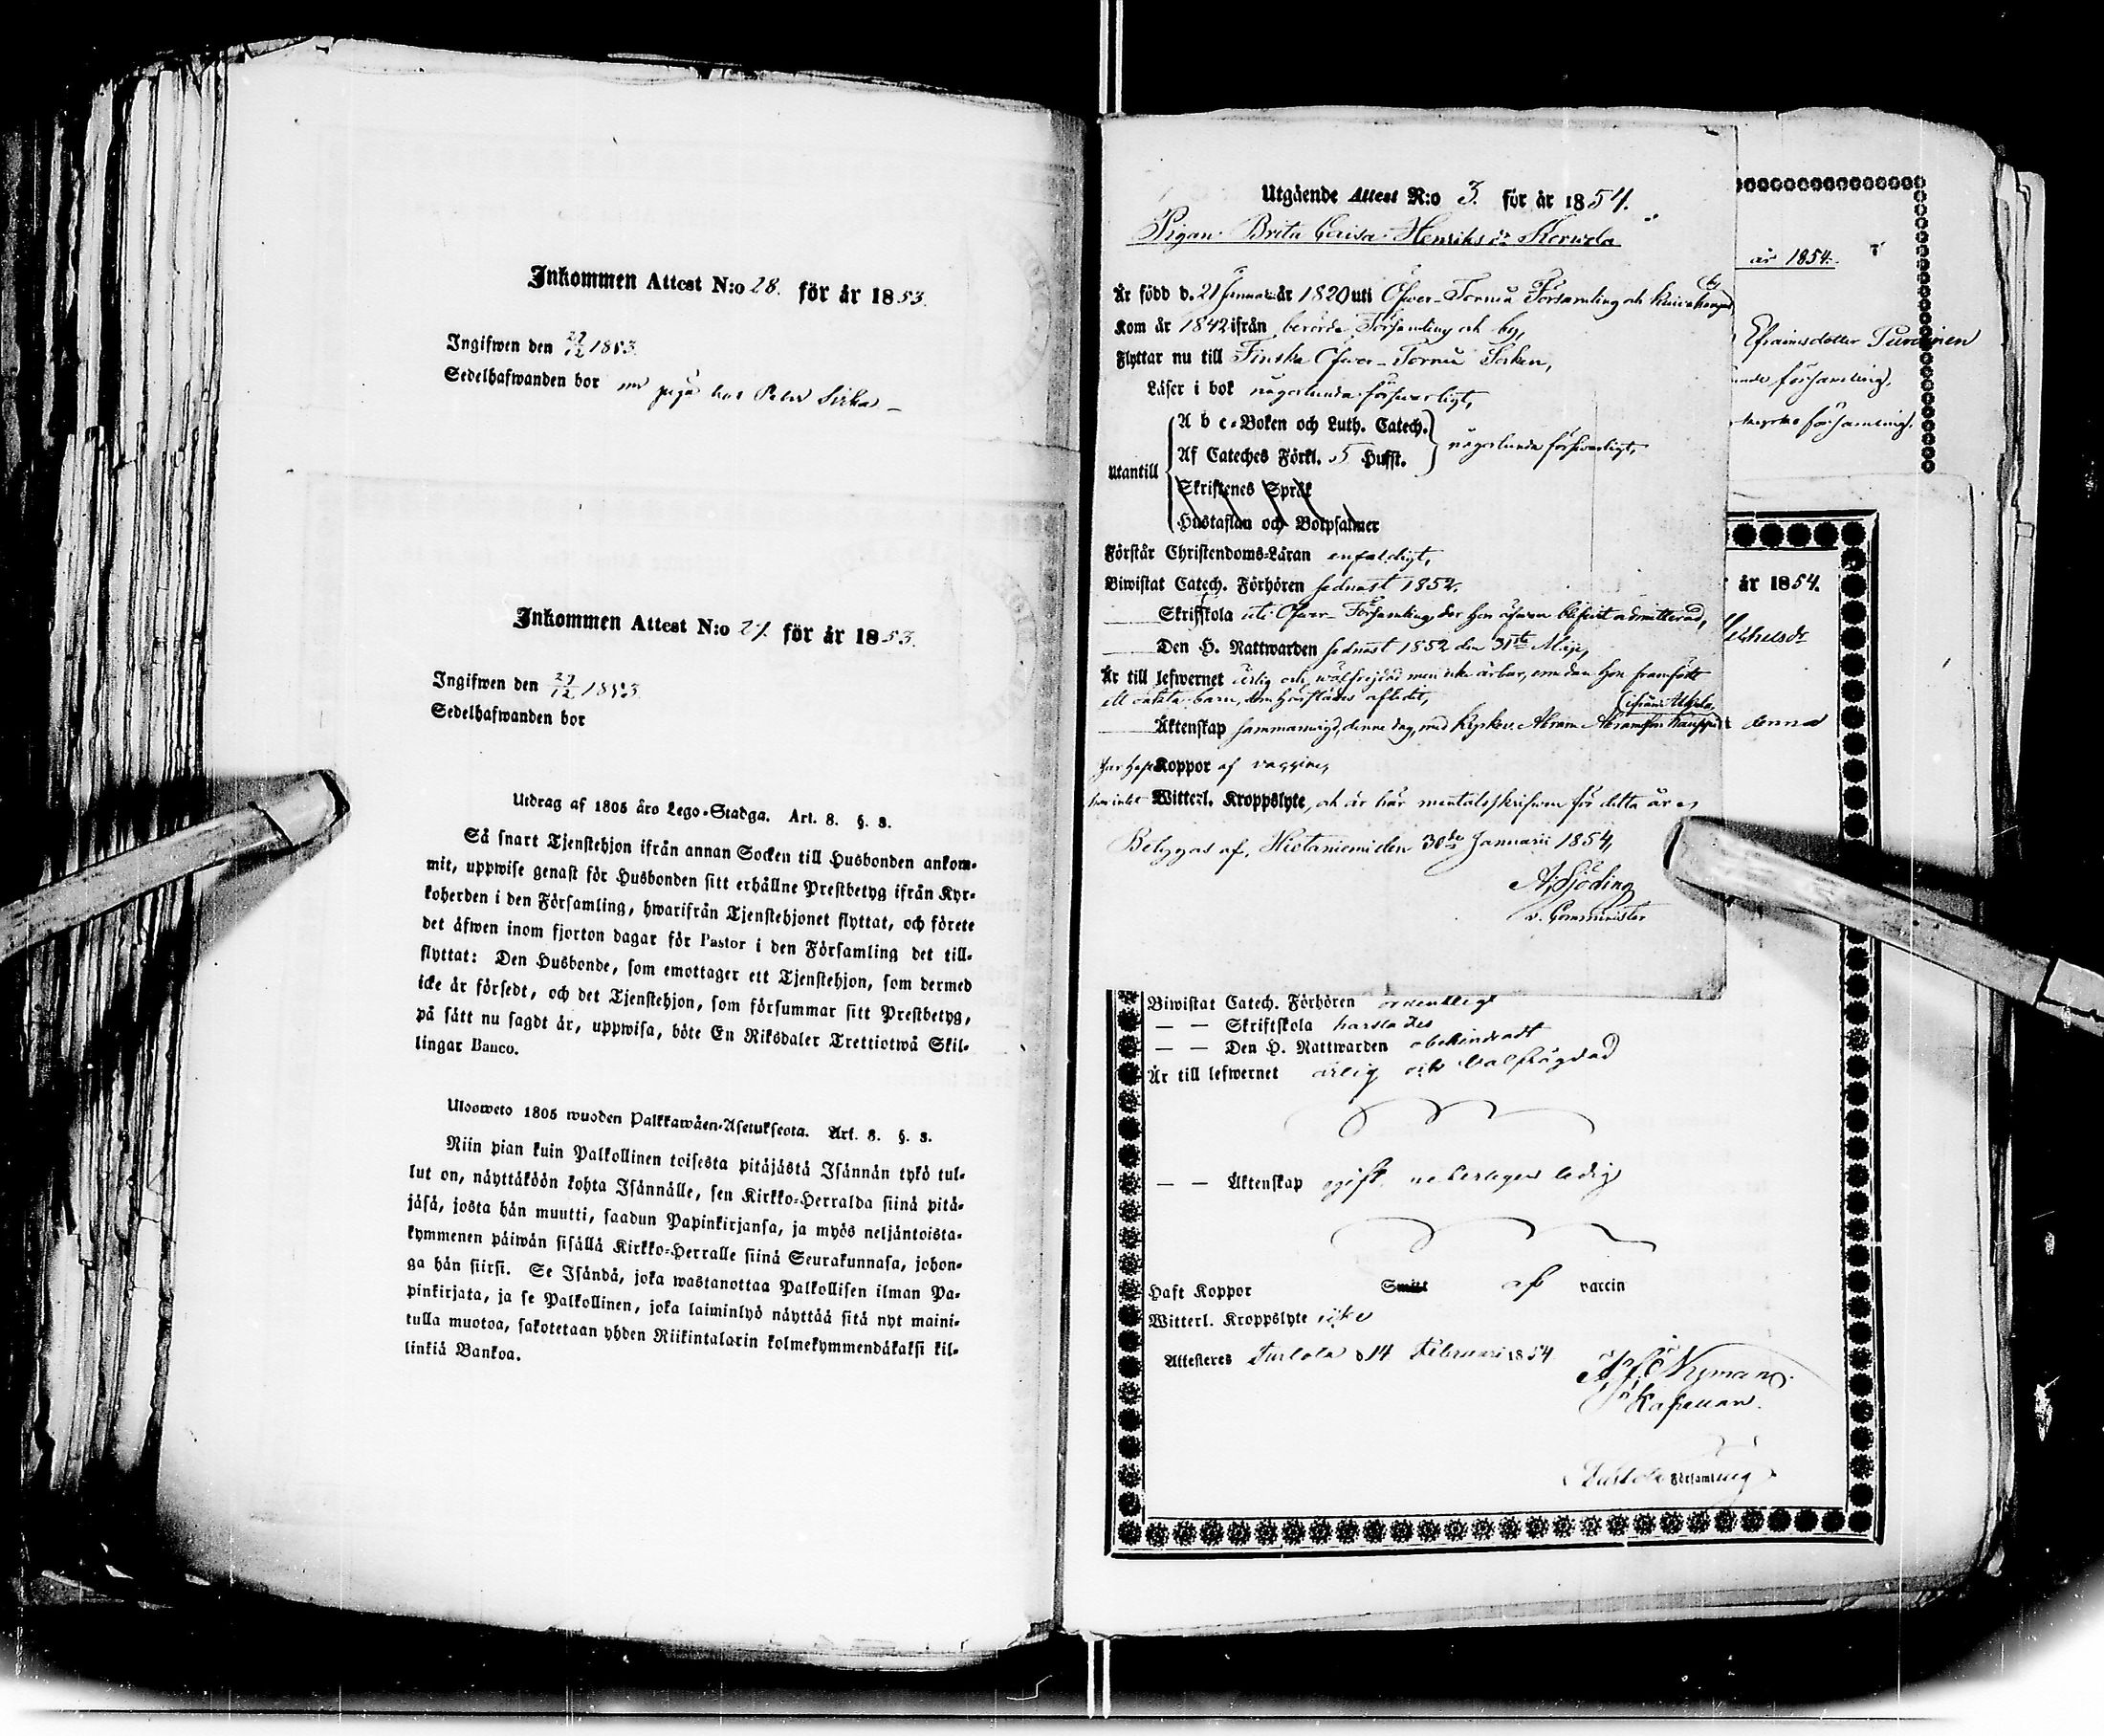 Inkommen Attest N:o 28. för år 1853.
Ingifwen den 27/12 1853.
Sedelhafwanden bor piga hos Peter Sirka
Inkommen Attest N:o 27. för år 1853.
Ingifwen den 27/12 1853.
Sedelhafwanden bor
Utdrag af 1805 års Lego-Stadga. Art. 8. §. 3.
Så snart Tjenstehjon ifrån annan Socken till Husbonden ankom-
mit, uppwise genast för Husbonden sitt erhållne Prestbetyg ifrån Kyr-
koherden i den Församling, hwarifrån Tjenstehjonet flyttat, och förete
det äfwen inom fjorton dagar för Pastor i den Församling det till-
flyttat: Den Husbonde, som emottager ett Tjenstehjon, som dermed
icke är försedt, och det Tjenstehjon, som försummar sitt Prestbetyg,
på sätt nu sagdt är, uppwisa, böte En Riksdaler Trettiotwå Skil-
lingar Banco.
Ulosweto 1805 wuoden Palkkawäen-Asetuksesta. Art. 8. §. 3.
Niin pian kuin Palkollinen toisesta pitäjästä Isännän tykö tul-
lut on, näyttäköön kohta Isännälle, sen Kirkko-Herralda siinä pitä-
jäsä, josta hän muutti, saadun Papinkirjansa, ja myös neljäntoista-
kymmenen päiwän sisällä Kirkko-Herralle siinä Seurakunnasa, johon-
ga hän siirsi. Se Isändä, joka wastanottaa Palkollisen ilman Pa-
pinkirjata, ja se Palkollinen, joka laiminlyö näyttää sitä nyt maini-
tulla muotoa, sakotetaan yhden Riikintalarin kolmekymmendäkaksi kil-
linkiä Bankoa.
Utgående Attest N:o 3. för år 1854.
Pigan Brita Caisa Henriksdr Kerwela
Är född d. 21 Januari år 1820 uti Öfwer-Torneå Församling och by
Kom år 1842 ifrån berörde Församling och by,
Flyttar nu till Finska Öfwer-Torneå Socken,
Läser i bok någorlunda försvarligt,
utantill
A b c-Boken och Luth. Catech.
Af Cateches Förkl. 5 Hufst. någorlunda försvarligt,
Skriftenes Språk
Hustaflan och Botpsalmer
Förstår Christendoms-Läran enfaldigt,
Biwistat Catech. Förhören sednast 1852.
Skriftskola uti Öfwer- Församling, der hon äfwen blifwit admitterad,
Den H. Nattwarden sednast 1852 den 31sta Maji,
Är till lefwernet ärlig och wälfrejdad men icke ärbar, emedan hon framfödt
ett oäkta barn,
Äktenskap sammanwigd, denne dag, med Abram Abramsson
Koppor af vaccine,
Witterl. Kroppslyte, och är här mantalsskrifwen för detta år,
Betygas af, Hietaniemi den 30de Januarii 1854,
A. Sjöding
v. Comminister
år 1854.
Efraimsdotter
församling.
församling.
år 1854.
Biwistat Catech. Förhören ordentligt
— — Skriftskola
— — Den H. Nattwarden obehindradt
Är till lefwernet ärlig och välfrägdad
— — Äktenskap ledig
Haft Koppor Smitt af vaccin
Witterl. Kroppslyte icke
Attesteres Turtola d 14 Februari 1854.
Nyman
Kapellan.
Turtola Församling